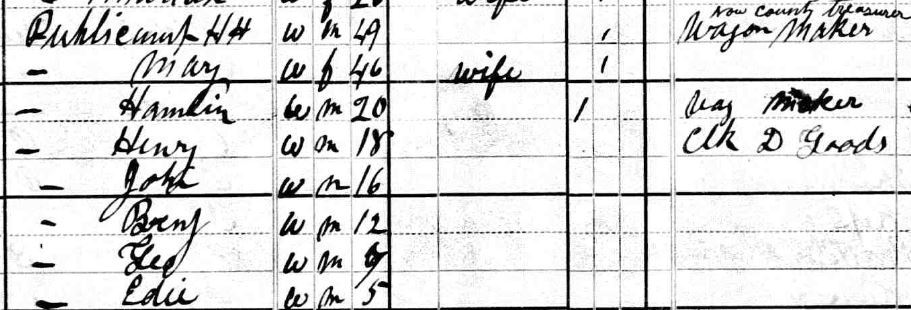 wife
now county treasurer
Publicount HH w m 49 / Wagon Maker
— Mary w f 46 wife /
— Hamlin w m 20 / Wag Maker
— Henry w m 18 Clk D Goods
— John w m 16
— Benj w m 12
— Geo w m
— Edie w m 5